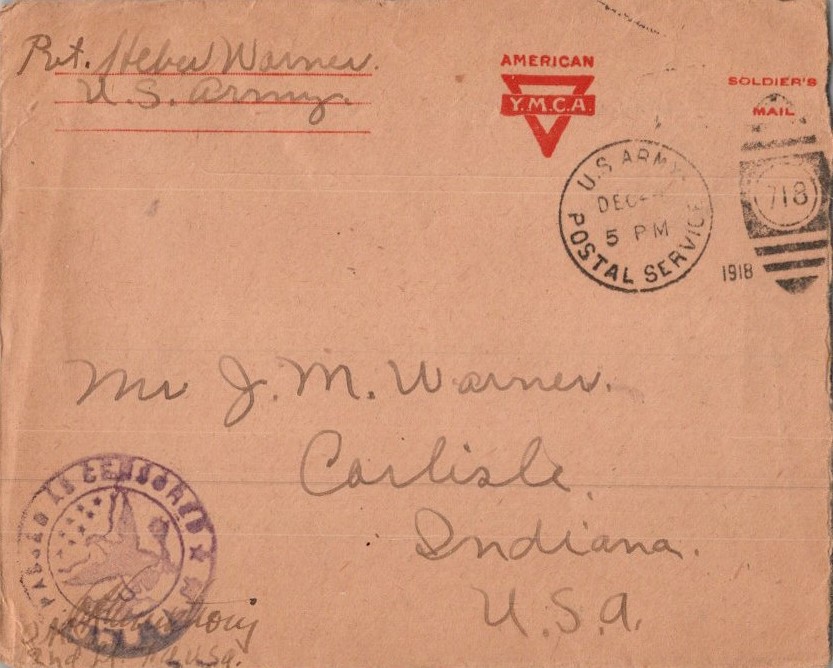 Pvt. Heber Warner.
U.S. Army.
AMERICAN
Y.M.C.A.
SOLDIER'S
MAIL
U.S. ARMY
POSTAL SERVICE
DEC
5 PM
718
1918
Mr J. M. Warner.
Carlisle.
Indiana.
U.S.A.
PASSED AS CENSORED
2nd Lt. U.S.A.